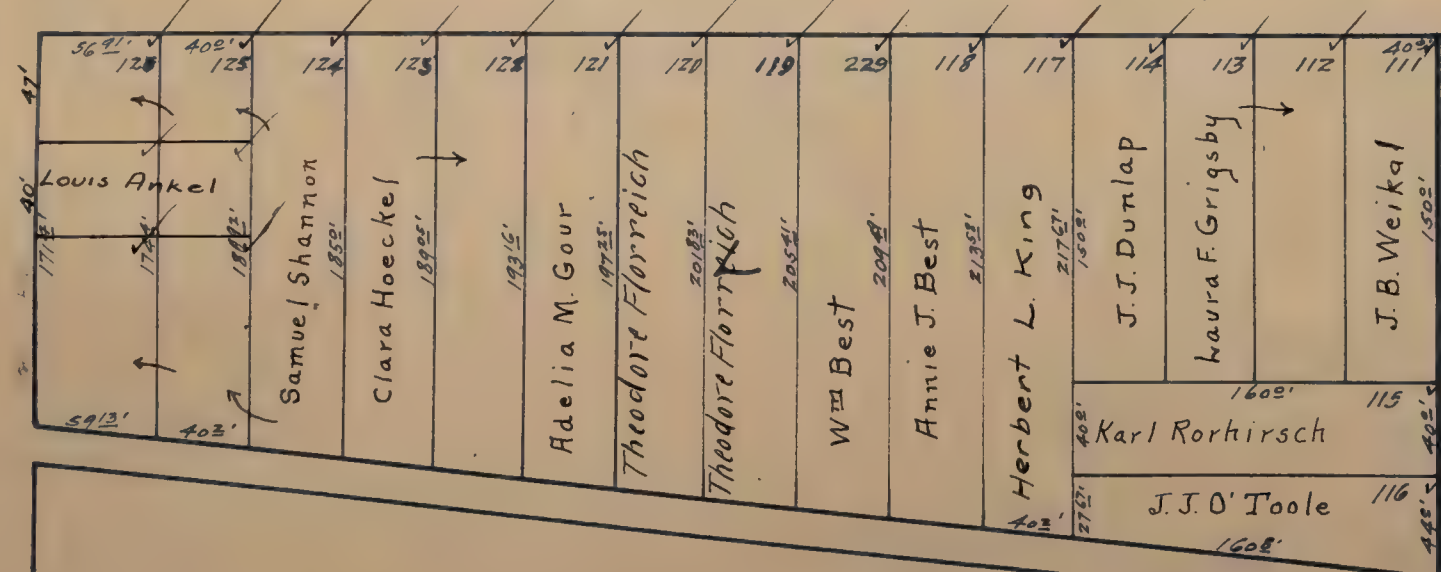 56 91' 40 0' 40 0'
126 125 124 123 122 121 120 119 229 118 117 114 113 112 111
47'
40'
Louis Ankel
171 2'
174 4'
Samuel Shannon
185 0'
Clara Hoeckel
189 05'
193 16'
Adelia M. Gour
197 25'
Theodore Florreich
201 83'
Theodore Florreich
205 41'
Wm Best
209 49'
Annie J. Best
213 58'
Herbert L. King
217 67'
150 0'
J.J. Dunlap
Laura F. Grigsby
J.B. Weikal
150 0'
59 13' 40 2'
40 2'
160 0' 115
40 0' Karl Rorhirsch 40 0'
27 67' J.J. O'Toole 116
160 8'